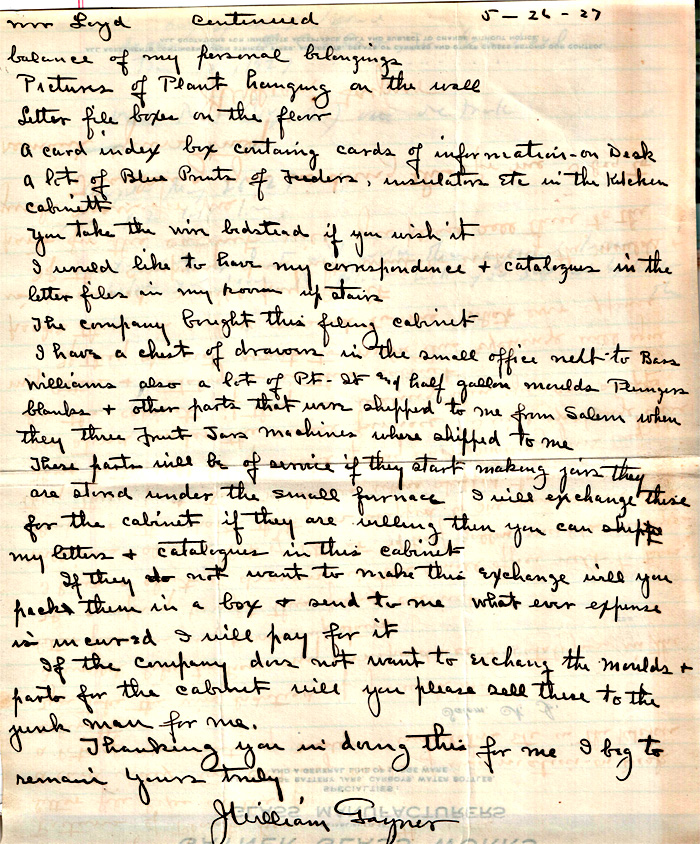 mr Loyd continued 5-26-27
balance of my personal belongings
Pictures of Plant hanging on the wall
Letter file boxes on the floor
A card index box containg cards of information-on Desk
A lot of Blue Prints of Feeders, insulators Etc in the Kitchen
cabinett
You take the wire bedstead if you wish it
I would like to have my correspondence + catalogues in the
letter files in my room up stairs
The company bought this filing cabinet
I have a chest of drawers in the small office next to Bass
Williams also a lot of Pt-Qt and half gallon moulds Plungers
blanks + other parts that were shipped to me from Salem when
they three Fruit Jars machines where shipped to me
These parts will be of service if they start making jars they
are stored under the small furnace I will exchange these
for the cabinet if they are willing then you can ship
my letters + catalogues in this cabinet
If they do not want to make this exchange will you
pack them in a box + send to me what ever expense
is incurred I will pay for it
If the company does not want to exchang the moulds +
parts for the cabinet will you please sell these to the
junk man for me.
Thanking you in doing this for me I beg to
remain Yours truly
J William Gayner
SPECIALTIES.
GLASS MANUFACTURERS
GAYNER GLASS WORKS